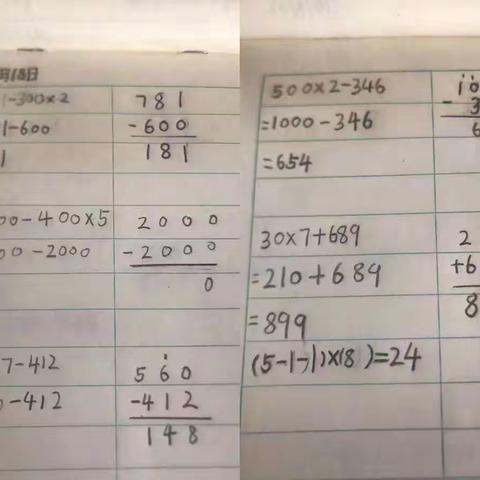 月18日
1-300×2
1-600
1
781
-600
181
00-400×5
00-2000
2000
-2000
0
7-412
0-412
560
-412
148
500×2-346
=1000-346
=654
10
-3
6
30×7+689
=210+689
=899
2
+6
8
(5-1-1)×(8)=24